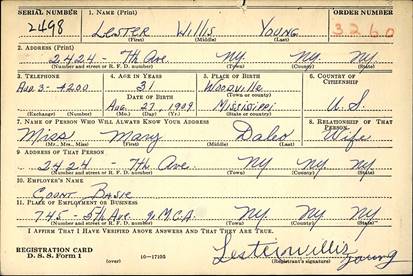 SERIAL NUMBER 1. NAME (Print) ORDER NUMBER
2498 Lester Willis Young 3260
(First) (Middle) (Last)
2. ADDRESS (Print)
2424 - 7th Ave. NY. NY. NY.
(Number and street or R. F. D. number) (Town) (County) (State)
3. TELEPHONE 4. AGE IN YEARS 5. PLACE OF BIRTH 6. COUNTRY OF CITIZENSHIP
Aud 3-4200 31 Woodville U.S.
DATE OF BIRTH (Town or county)
Aug. 27, 1909 Mississippi
(Exchange) (Number) (Mo.) (Day) (Yr.) (State or country)
7. NAME OF PERSON WHO WILL ALWAYS KNOW YOUR ADDRESS 8. RELATIONSHIP OF THAT PERSON
Miss Mary Wife
(Mr., Mrs., Miss) (First) (Middle) (Last)
9. ADDRESS OF THAT PERSON
2424 - 7th Ave. NY. NY. NY.
(Number and street or R. F. D. number) (Town) (County) (State)
10. EMPLOYER'S NAME
Count Basie
11. PLACE OF EMPLOYMENT OR BUSINESS
745 - 5th Ave. M.C.A. NY. NY. NY.
(Number and street or R. F. D. number) (Town) (County) (State)
I AFFIRM THAT I HAVE VERIFIED ABOVE ANSWERS AND THAT THEY ARE TRUE.
REGISTRATION CARD
D. S. S. Form 1 (over) 16-17105 Lester willis young
(Registrant's signature)